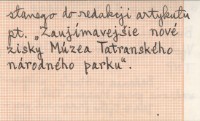 słanego do redakcji artykułu
pt. „Zaujímavejšie nové
zisky Múzea Tatranského
národného parku".